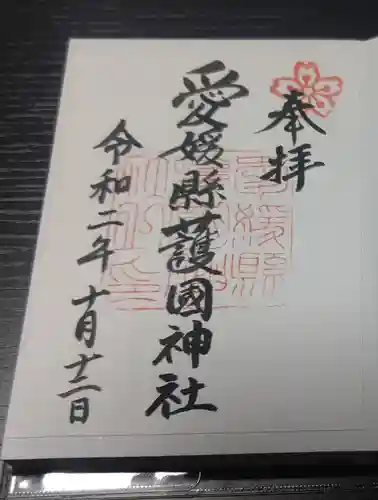 奉拝
愛媛縣護國神社
令和二年十月廿二日